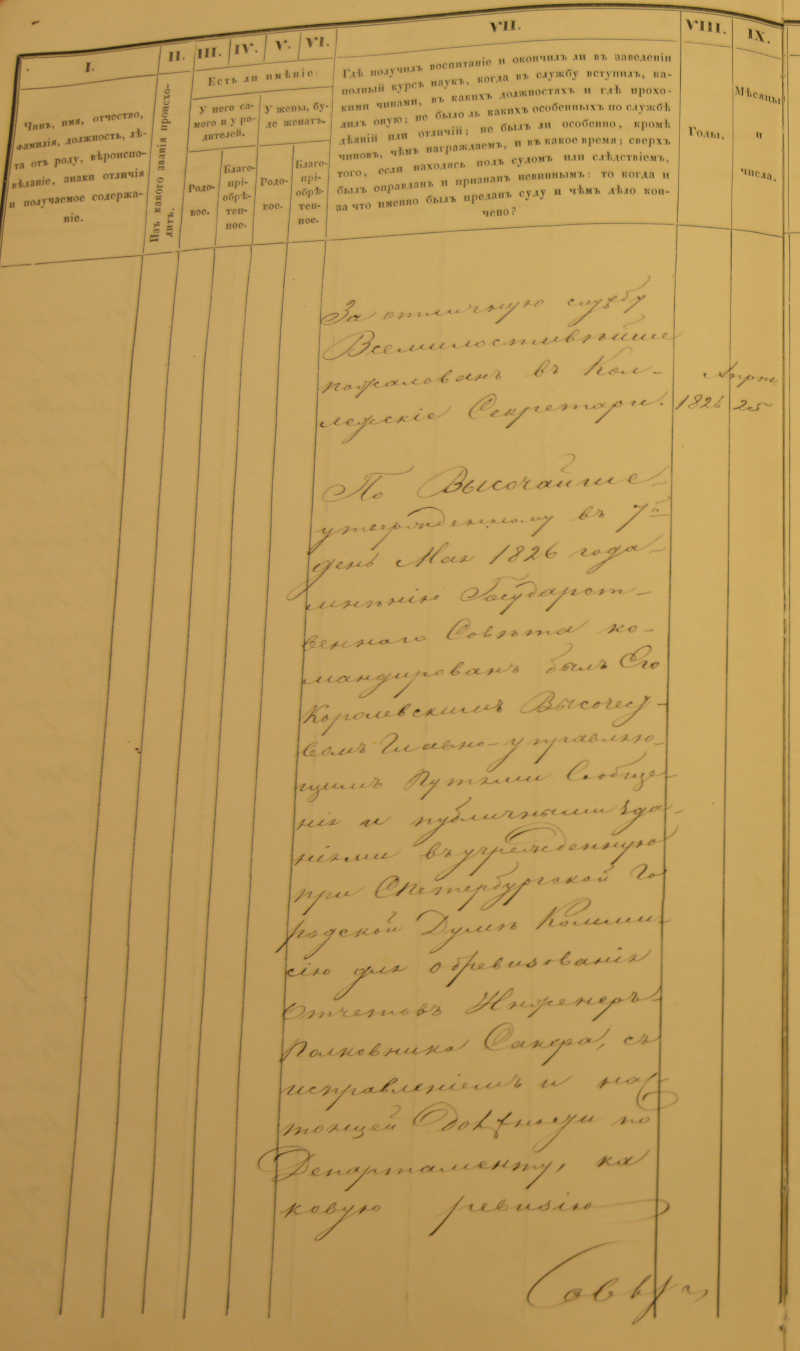 I.
II.
III.
IV.
V.
VI.
VII.
VIII.
IX.
Чинъ, имя, отчество,
фамилія, должность, лѣ-
та отъ роду, вѣроиспо-
вѣданіе, знаки отличія
и получаемое содержа-
ніе.
Изъ какого званія происхо-
дитъ.
Есть ли имѣніе:
У него са-
мого и у ро-
дителей.
У жены, бу-
де женатъ.
Родо-
вое.
Благо-
прі-
обрѣ-
тен-
ное.
Родо-
вое.
Благо-
прі-
обрѣ-
тен-
ное.
Гдѣ получилъ воспитаніе и окончилъ ли въ заведеніи
полный курсъ наукъ, когда въ службу вступилъ, ка-
кими чинами, въ какихъ должностяхъ и гдѣ прохо-
дилъ оную; не было ль какихъ особенныхъ по службѣ
дѣяній или отличій; не былъ ли особенно, кромѣ
чиновъ, чѣмъ награждаемъ, и въ какое время; сверхъ
того, если находясь подъ судомъ или слѣдствіемъ,
былъ оправданъ и признанъ невиннымъ: то когда и
за что именно былъ преданъ суду и чѣмъ дѣло кон-
чено?
Годы.
Мѣсяцы
и
числа.
За отличную службу
Всемилостивѣйше
пожалованъ въ Кол-
лежскіе Секретари. 1826 25
По Высочайше
утвержденному въ 7й
день Мая 1826 года
мнѣнію Государст-
веннаго Совѣта ко-
мандированъ былъ Его
Королевскимъ Высочест-
вомъ Главно-управляю-
щимъ Путями Сообще-
нія и публичными зда-
ніями въ учрежденную
при СПетербургской Го
родской Думѣ Комми-
сію для обревизованія
Отчетовъ Инженеръ
Полковника Сакера, съ
исправленіемъ и нас-
тоящей Должности по
Департаменту, ка
ковую ревизію